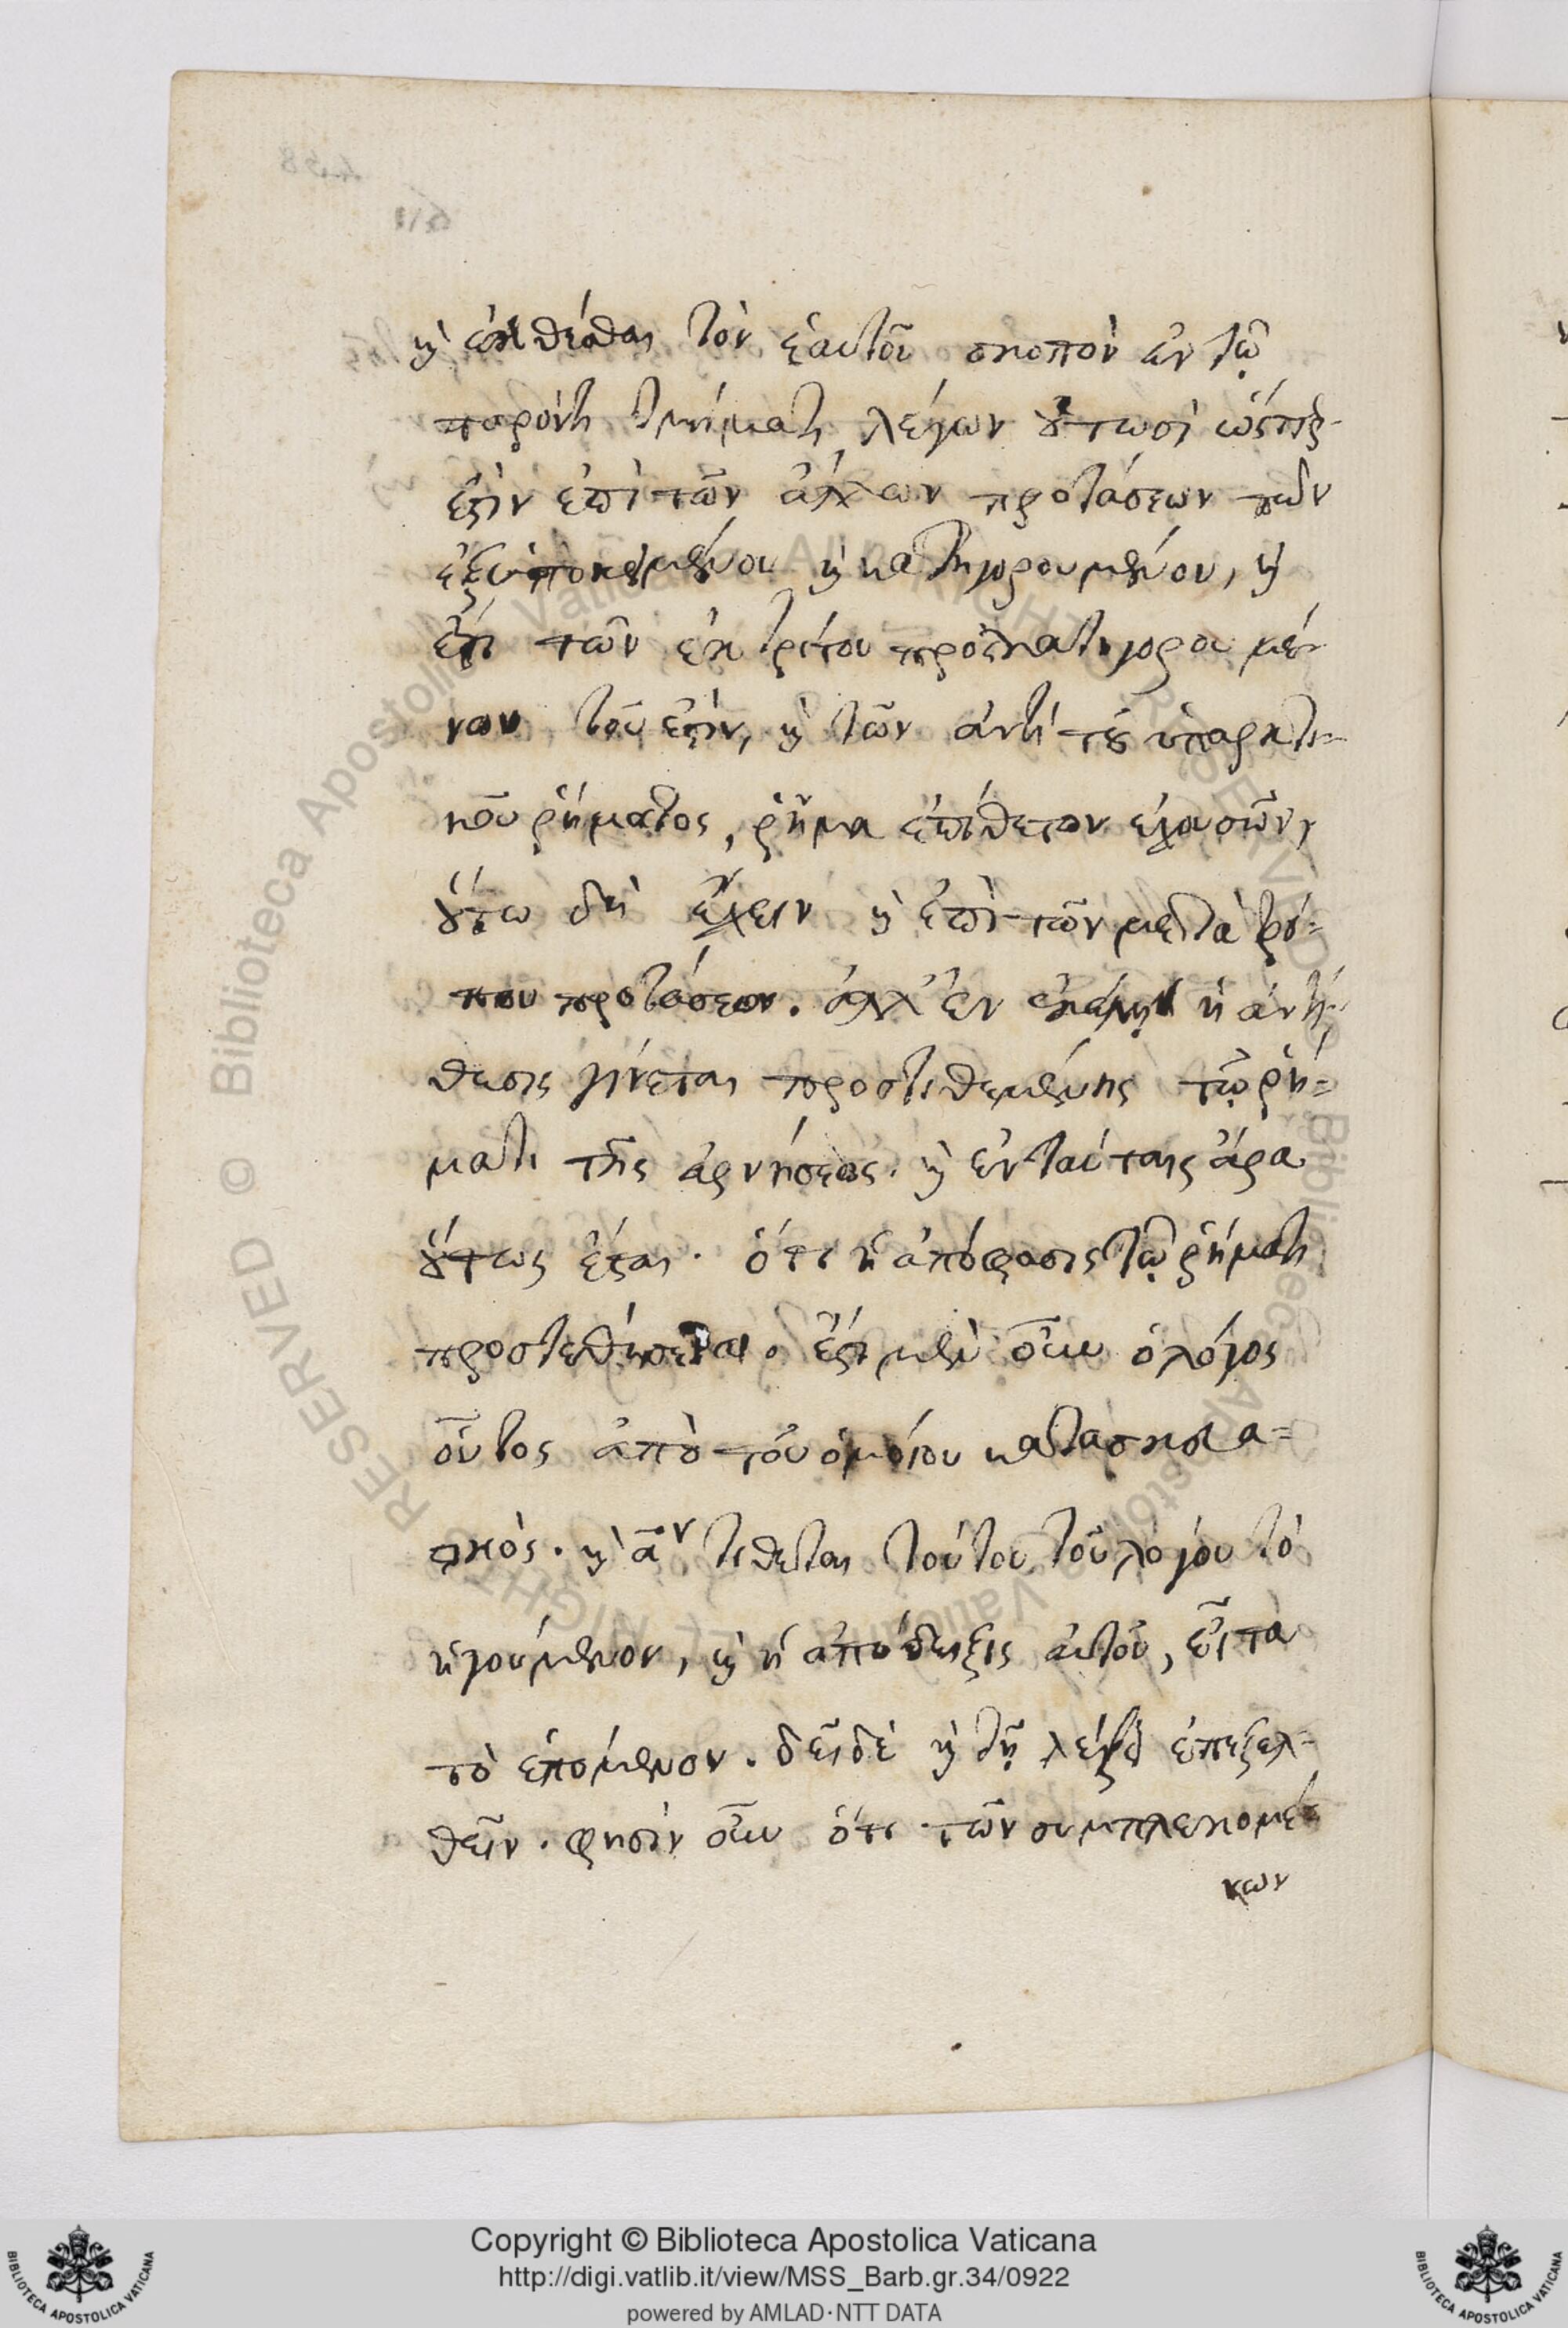 καὶ ἐκτίθεσθαι τὸν ἑαυτοῦ σκοπὸν ἐν τῷ
παρόντι τμήματι λέγων οὕτωσὶ ὥσπερ
ἐστὶν ἐπὶ τῶν ἄλλων προτάσεων τῶν
ἐξ ὑποκειμένου καὶ κατηγορουμένου, καὶ
ἐπὶ τῶν ἐκ τρίτου προσκατηγορουμέ-
νου τοῦ ἐστὶν, καὶ τῶν ἀντὶ τοῦ ὑπαρκτι-
κοῦ ῥήματος, ῥῆμα ἐπίθετον ἐχουσῶν,
οὕτω δεῖ ἔχειν καὶ ἐπὶ τῶν μετὰ τρό-
που προτάσεων. ἀλλ' ἐν ἐκείναις ἡ ἀντί-
θεσις γίνεται προστιθεμένης τῷ ῥή-
ματι τῆς ἀρνήσεως. καὶ ἐν ταύταις ἄρα
οὕτως ἔσται. ὅτι ἡ ἀπόφασις τῷ ῥήματι
προστεθήσεται. ἔστι μὲν οὖν ὁ λόγος
οὗτος ἀπὸ τοῦ ὁμοίου κατασκευα-
στικός. καὶ ἂν τίθεται τούτου τοῦ λόγου τὸ
ἡγούμενον, καὶ ἡ ἀπόδειξις αὐτοῦ, εἶτα
τὸ ἑπόμενον. δεῖ δὲ καὶ τῇ λέξει ἐπεξελ-
θεῖν. φησὶν οὖν ὅτι τῶν συμπλεκομέ-
νων
Copyright © Biblioteca Apostolica Vaticana
http://digi.vatlib.it/view/MSS_Barb.gr.34/0922
powered by AMLAD·NTT DATA